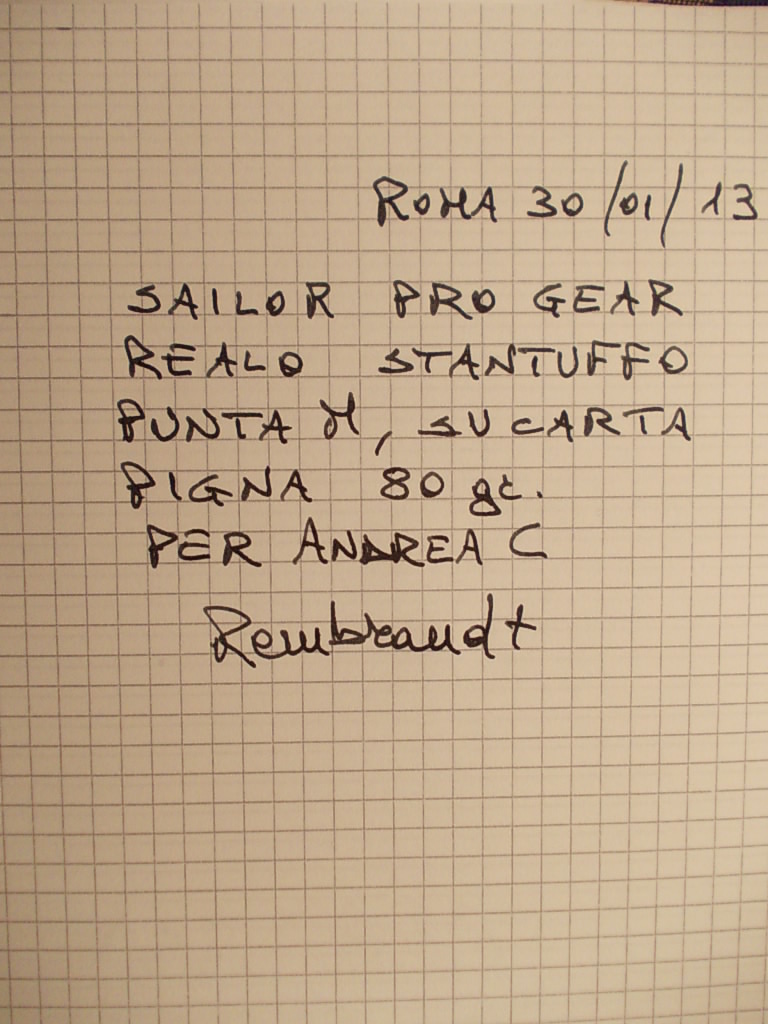 ROMA 30/01/13
SAILOR PRO GEAR
REALO STANTUFFO
PUNTA M, SU CARTA
PIGNA 80 gr.
PER ANDREA C
Rembrandt